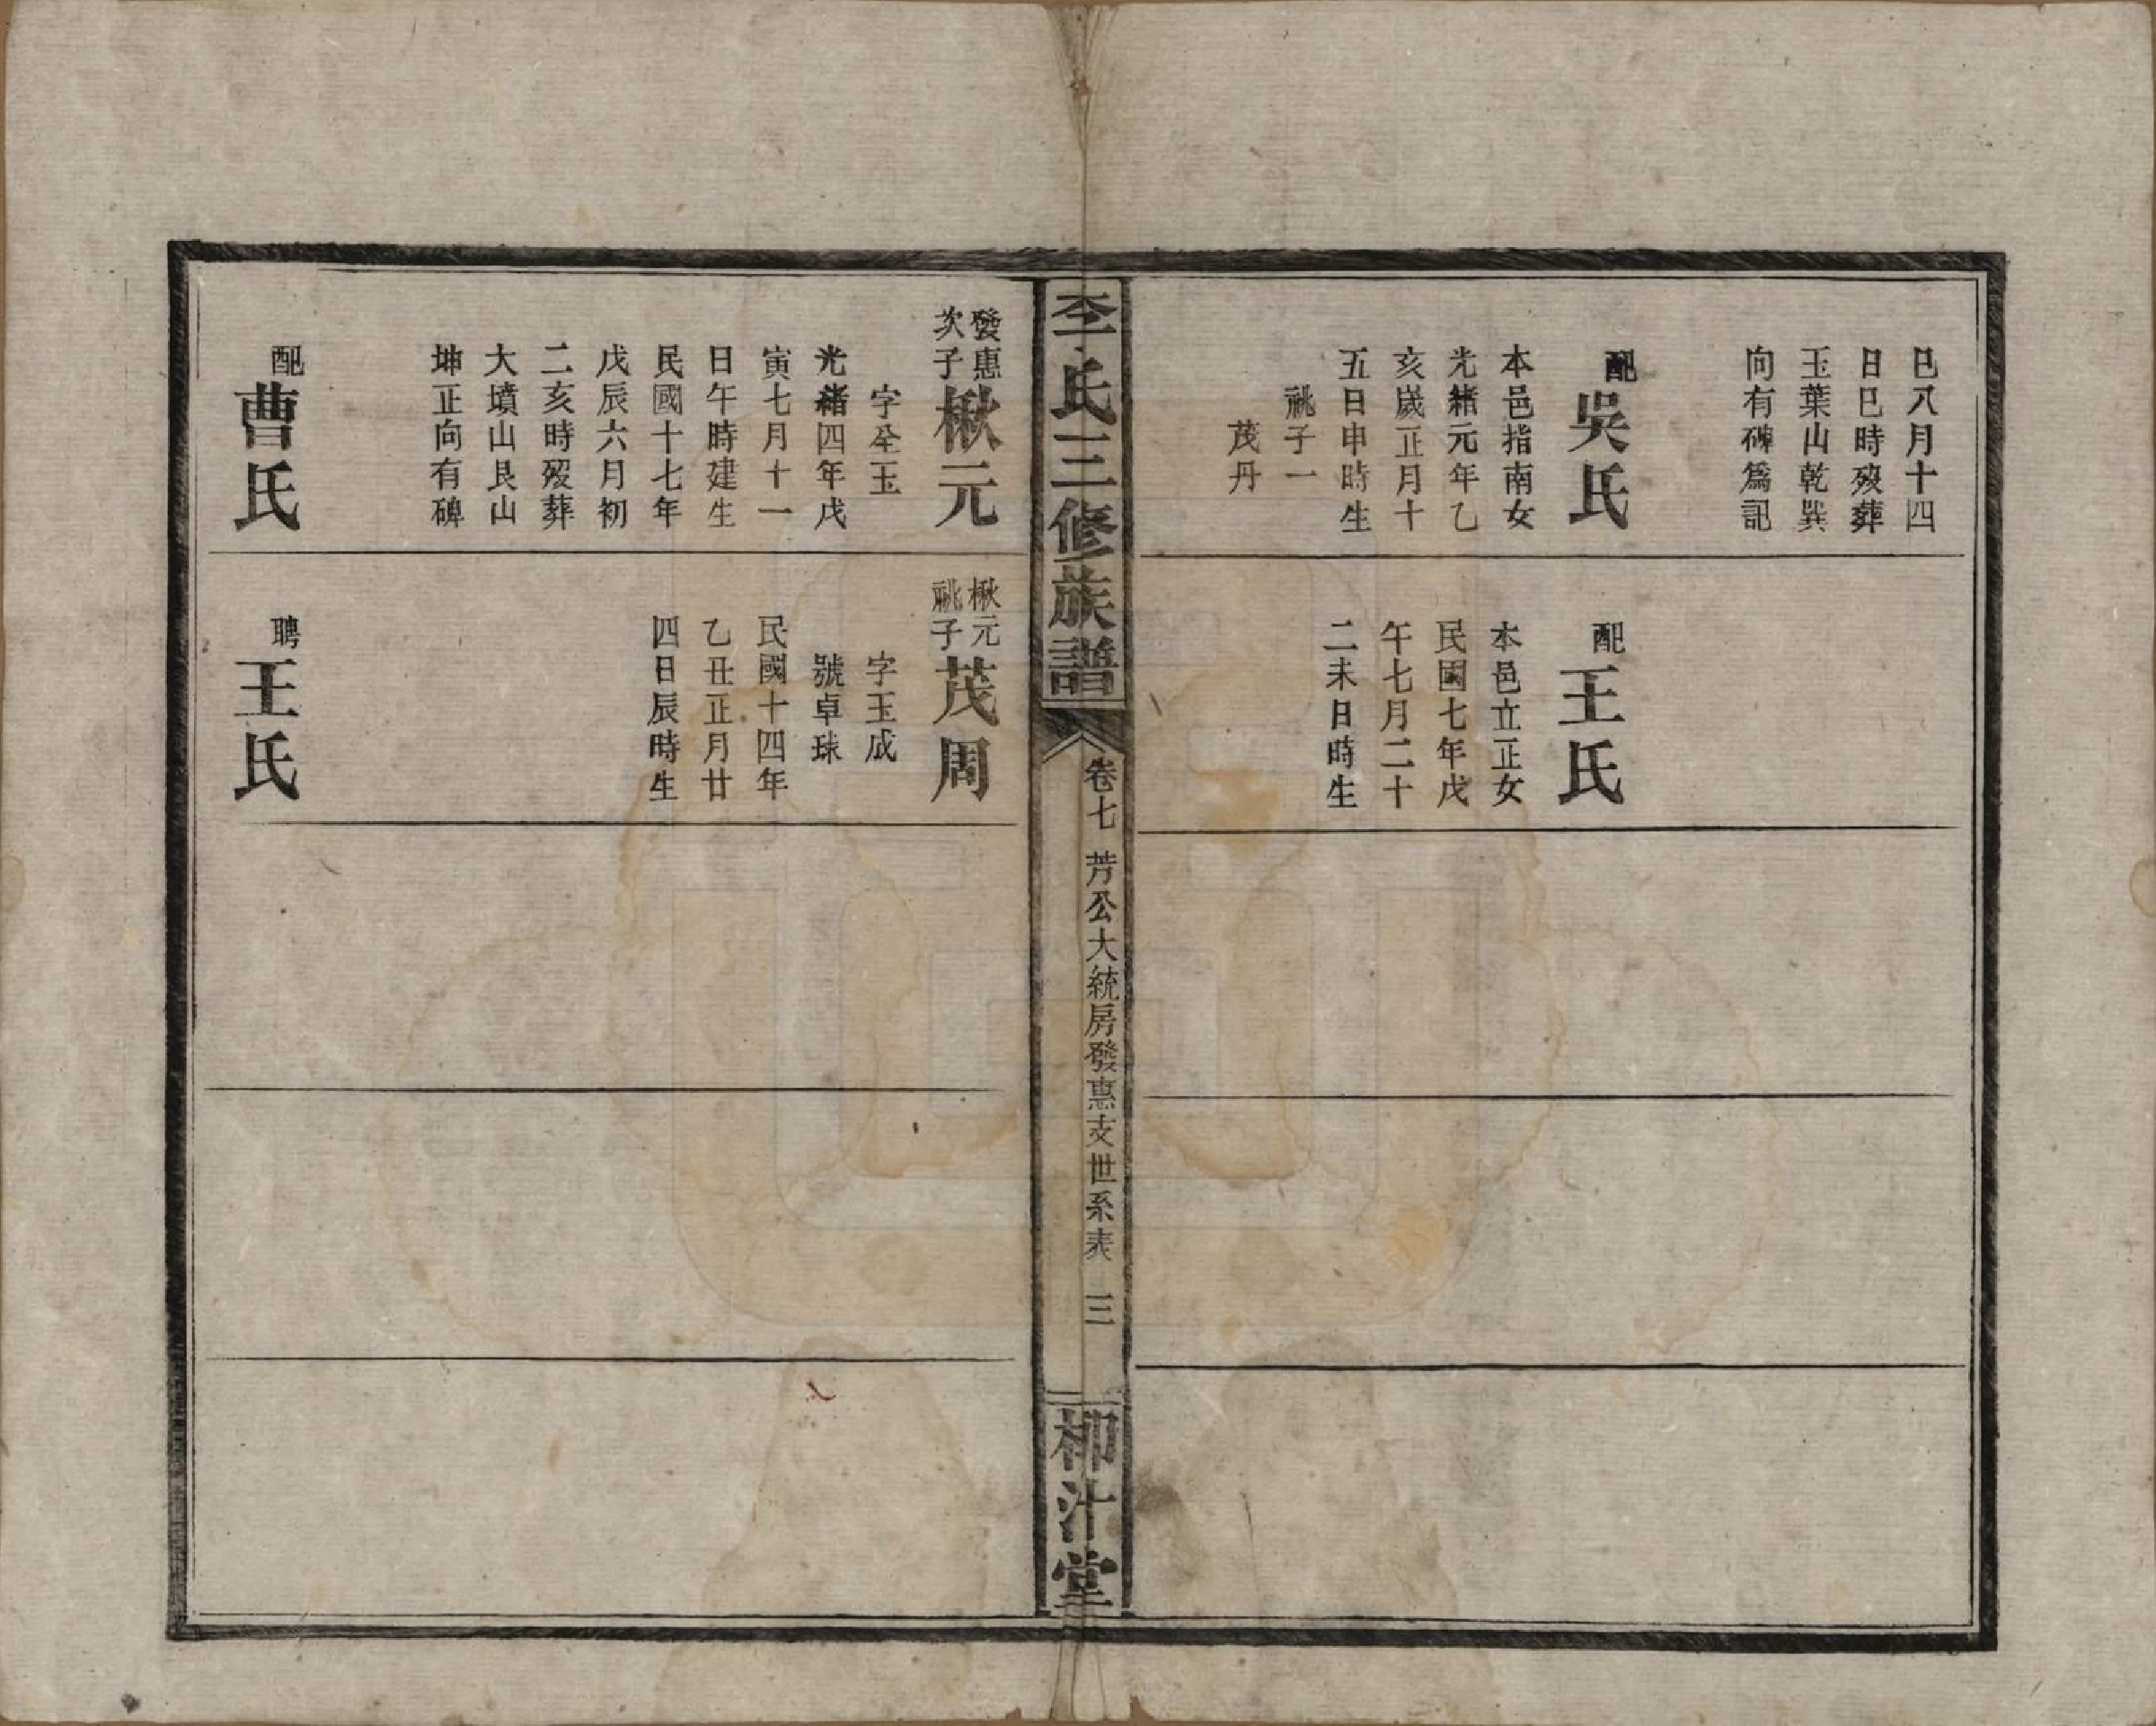 巳八月十四
日巳時歿葬
玉葉山乾巽
向有碑爲記
配
吳氏
本邑指南女
光緒元年乙
亥歲正月十
五日申時生
祧子一
茂丹
配
王氏
本邑立正女
民國七年戊
午七月二十
二未日時生
李氏三修族譜
卷七 芳公大統房發惠支世系表 三
柳汁堂
發惠
次子
楸元
字全玉
光緒四年戊
寅七月十一
日午時建生
民國十七年
戊辰六月初
二亥時歿葬
大墳山艮山
坤正向有碑
配
曹氏
楸元
祧子
茂周
字玉成
號卓球
民國十四年
乙丑正月廿
四日辰時生
聘
王氏